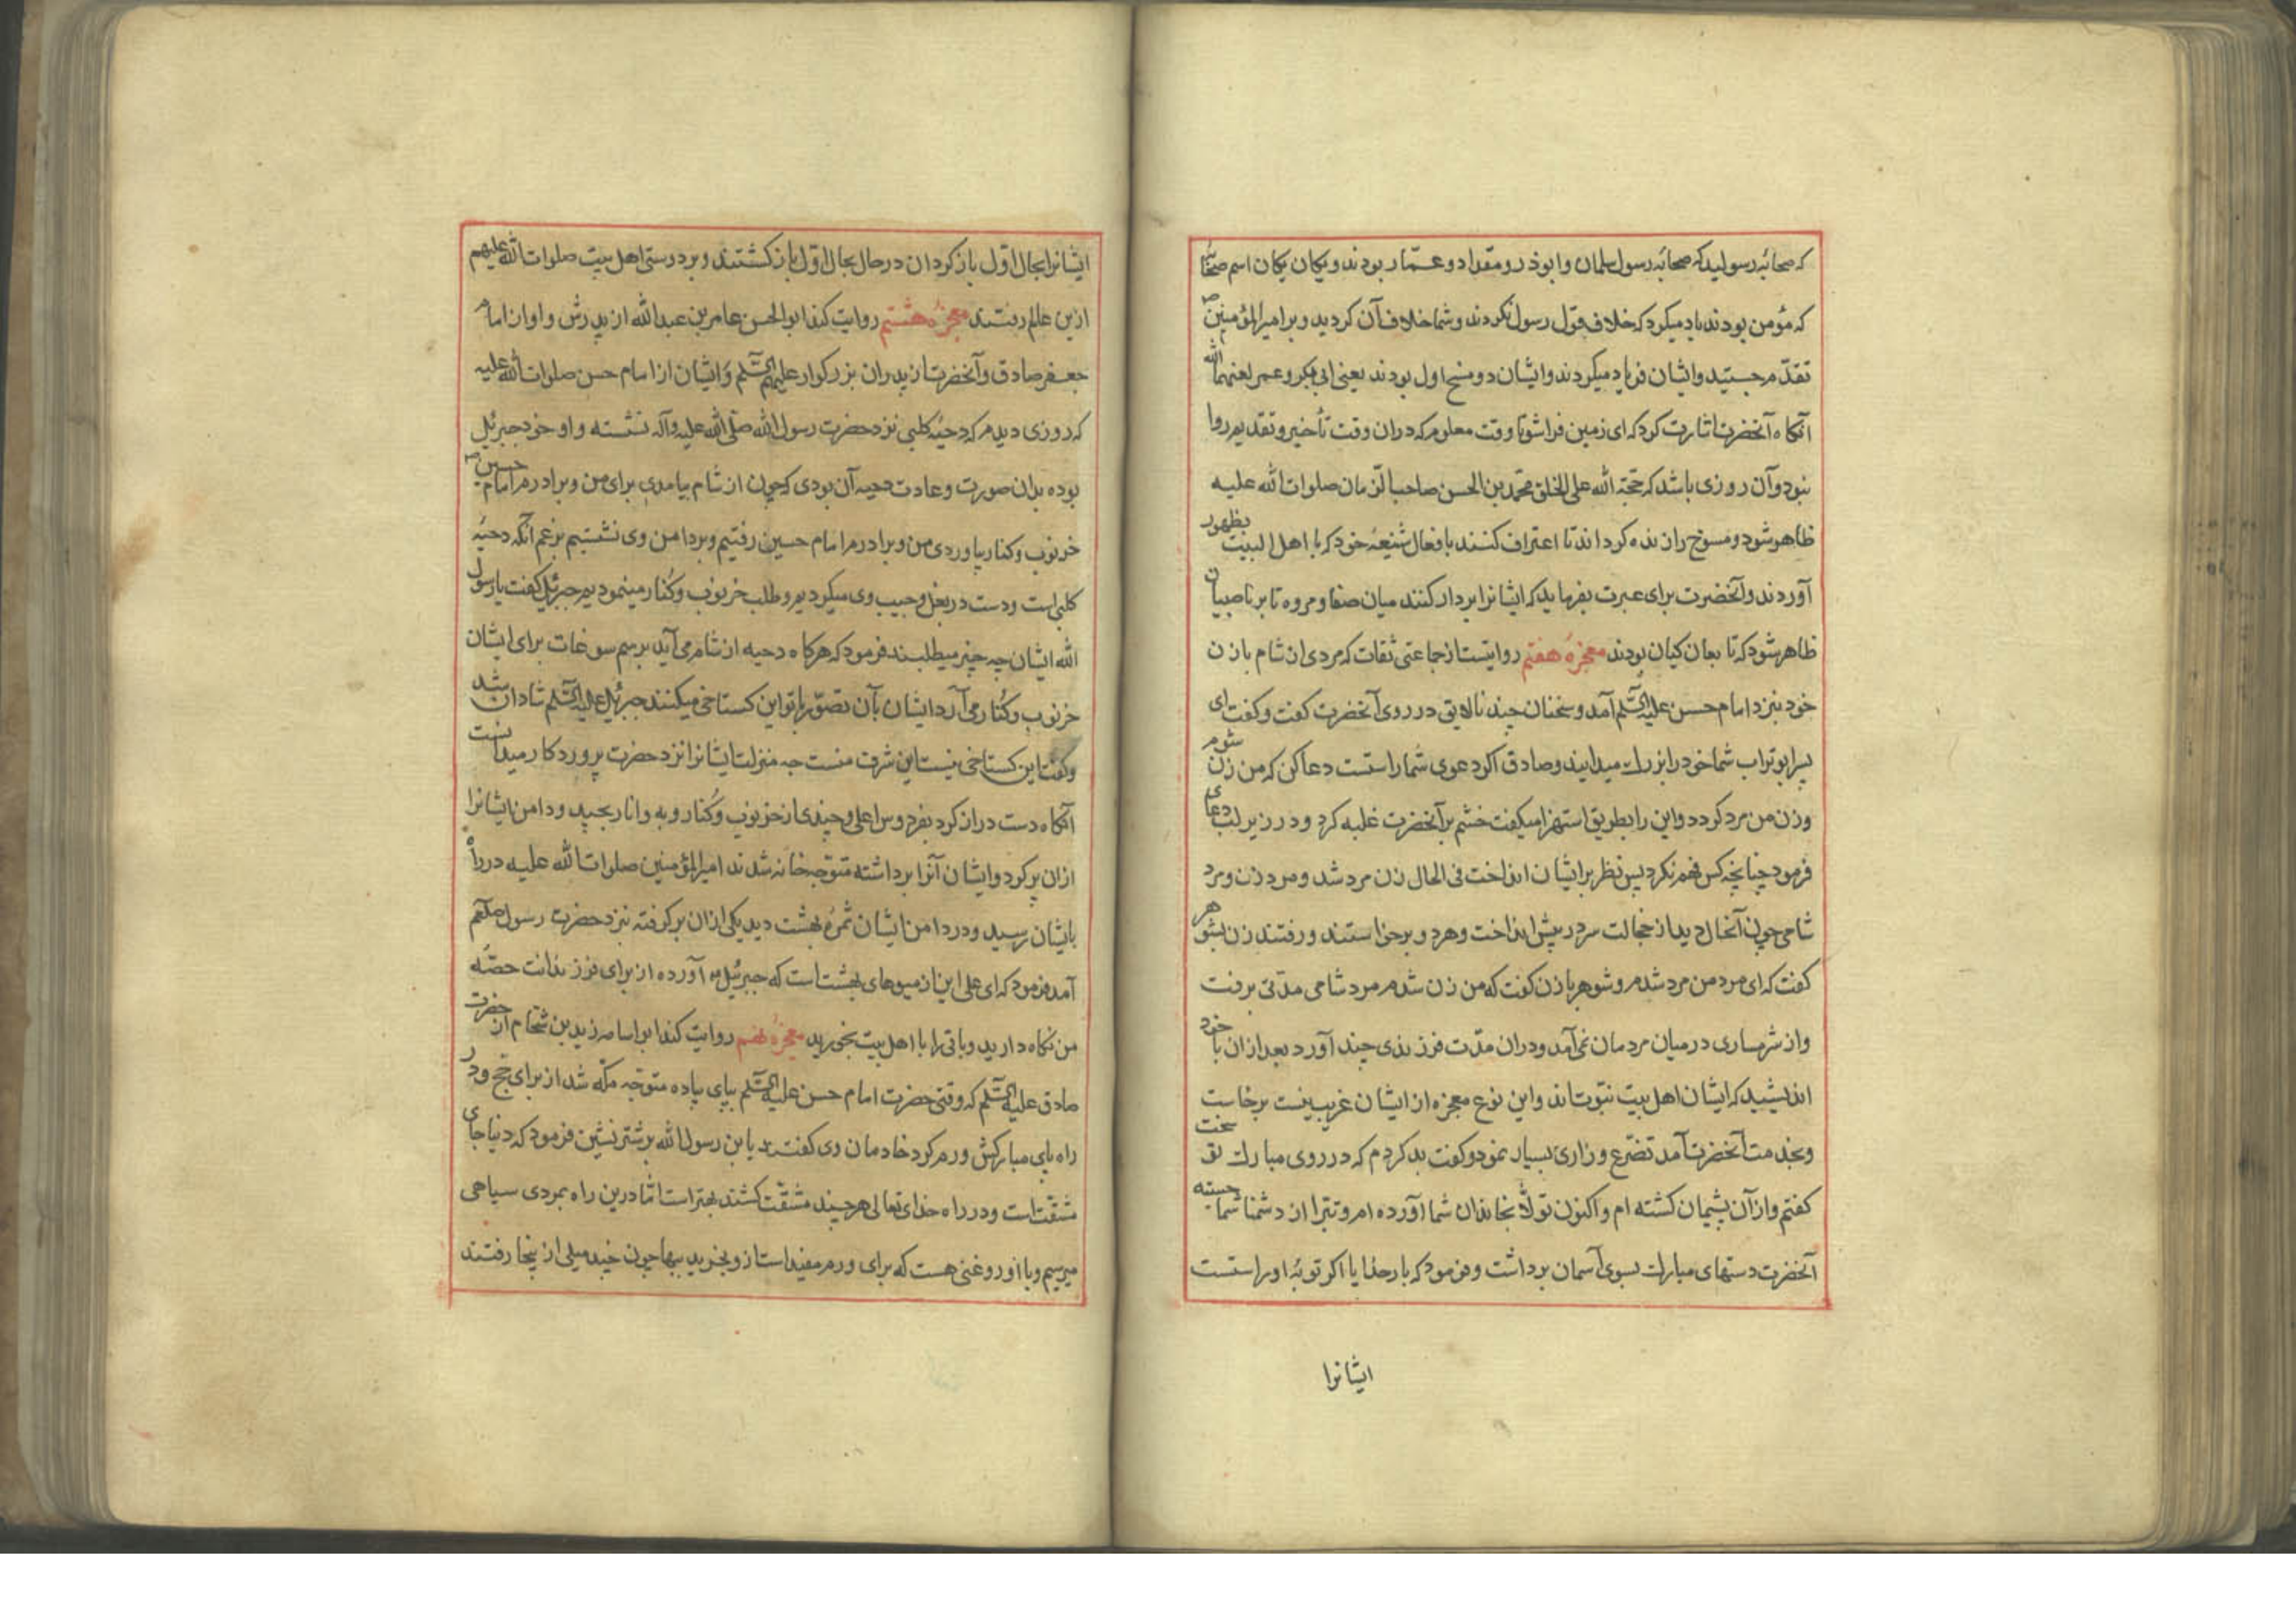 که صحابهٔ رسولید که صحابهٔ رسول سلمان و ابوذر و مقداد و عمّار بودند و یکان یکان اسم صحابه
که مؤمن بودند یاد میکرد که خلاف قول رسول نکردند و شما خلاف آن کردید و بر امیرالمؤمنین
تقدّم جستید و ایشان فریاد میکردند و ایشان دو مسخ اول بودند یعنی ابی بکر و عمر لعنهما الله
آنکاه آنحضرت اشارت کرد که ای زمین فراشو تا وقت معلوم که دران وقت تأخیر و تقدیم روا
نبود و آن روزی باشد که حجّة الله علی الخلق محمّد بن الحسن صاحب الزمان صلوات الله علیه
ظاهر شود و مسوخ را زنده کرداند تا اعتراف کنند بافعال شنیعهٔ خود که با اهل البیت بظهور
آوردند و آنحضرت برای عبرت بفرماید که ایشانرا بردار کنند میان صفا و مروه تا بر ناصبیان
ظاهر شود که تابعان کیان بودند معجزهٔ هفتم روایتست از جماعتی ثقات که مردی از شام با زن
خود بنزد امام حسن علیه السّلم آمد و سخنان چند نالایق در روی آنحضرت گفت و کفت ای
پسر ابوتراب شما خود را بزرك میدانید و صادق اکر دعوی شما راستست دعا کن که من زن شوم
و زن من مرد کردد و این را بطریق استهزا میکفت خشم بر آنحضرت غلبه کرد و در زیر لب دعای
فرمود چنانچه کس فهم نکرد پس نظر بر ایشان انداخت فی الحال زن مرد شد و مرد زن و مرد
شامی چون آنحال دید از خجالت سر در پیش انداخت و هر دو برخاستند و رفتند زن بشوهر
کفت که ای مرد من مرد شدم و شوهر با زن کفت که من زن شدم مرد شامی مدّتی برفت
و از شرمساری در میان مردمان نمی آمد و دران مدّت فرزندی چند آورد بعد ازان با خود
اندیشید که ایشان اهل بیت نبوّت اند و این نوع معجزه از ایشان غریب نیست برخاست
و بخدمت آنحضرت آمد تضرّع و زاری بسیار نمود و کفت بد کردم که در روی مبارك تو سخت
کفتم و از آن پشیمان کشته ام و اکنون تولّا بخاندان شما آورده ام و تبرّا از دشمنا شما جسته
آنحضرت دستهای مبارك بسوی آسمان برداشت و فرمود که بار خدایا اکر توبهٔ او راستست
ایشانرا
ایشانرا بحال اوّل باز کردان در حال بحال اوّل باز کشتند و بر دوستی اهل بیت صلوات الله علیهم
ازین عالم رفتند معجزهٔ هشتم روایت کند ابو الحسن عامر بن عبدالله از پدرش و او از امام
جعفر صادق و آنحضرت از پدران بزرکوار علیهم السّلم و ایشان از امام حسن صلوات الله علیه
که روزی دیدم که دحیهٔ کلبی نزد حضرت رسول الله صلّی الله علیه وآله نشسته و او خود جبرئیل
بوده بدان صورت و عادت دحیه آن بودی که چون از شام بیامدی برای من و برادرم امام حسین
خرنوب و کنار بیاوردی من و برادرم امام حسین رفتیم و بر دامن وی نشستیم بزعم آنکه دحیهٔ
کلبی است و دست در بغل و جیب وی میکردیم و طلب خرنوب و کُنار مینمودیم جبرئیل کفت یا رسول
الله ایشان چه چیز میطلبند فرمود که هرکاه دحیه از شام می آید برسم سوغات برای ایشان
خرنوب و کُنار می آرد ایشان بآن تصوّر با تو این کستاخی میکنند جبرئیل علیه السّلم شادان شد
و کفت این کستاخی نیست این شرف منست چه منزلت ایشانرا نزد حضرت پروردکار میدانست
آنکاه دست دراز کرد بفردوس اعلی و چندی از خرنوب و کُنار و به و انار بچید و دامن ایشانرا
ازان پر کرد و ایشان آنرا برداشته متوجّه خانه شدند امیرالمؤمنین صلوات الله علیه در راه
بایشان رسید و در دامن ایشان ثمرهٔ بهشت دید یکی ازان برکرفته نزد حضرت رسول صلعم
آمد فرمود که ای علی این از میوهای بهشت است که جبرئیل آورده از برای فرزندانت حصّهٔ
من نکاه دارید و باقی را با اهل بیت بخورید معجزهٔ نهم روایت کند ابو اسامه زید بن شحّام از حضرت
صادق علیه السّلم که وقتی حضرت امام حسن علیه السّلم بپای پیاده متوجّه مکّه شد از برای حج و در
راه پای مبارکش ورم کرد خادمان وی کفتند یا بن رسول الله بر شتر نشین فرمود که دنیا جای
مشقّت است و در راه خدای تعالی هر چند مشقّت کشند بهتر است امّا درین راه بمردی سیاهی
میرسیم و با او روغنی هست که برای ورم مفید است ازو بخرید ببها چون خید میلی از پنجا رفتند